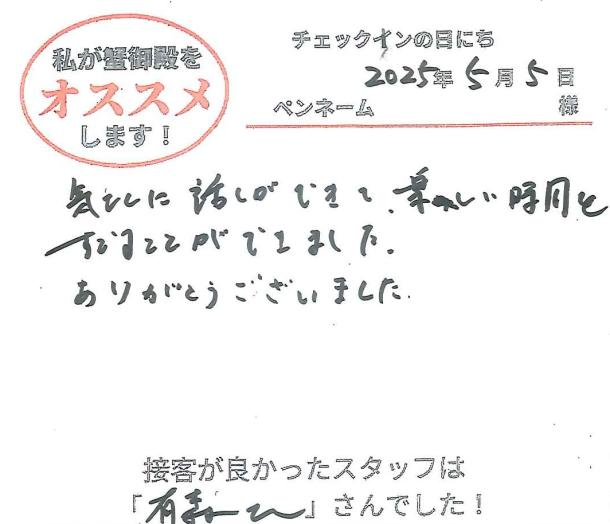 私が蟹御殿を
オススメ
します！
チェックインの日にち
2025年5月5日
ペンネーム 様
話しができて、楽しい時間を
すごすことができました。
ありがとうございました。
接客が良かったスタッフは
「有」さんでした！